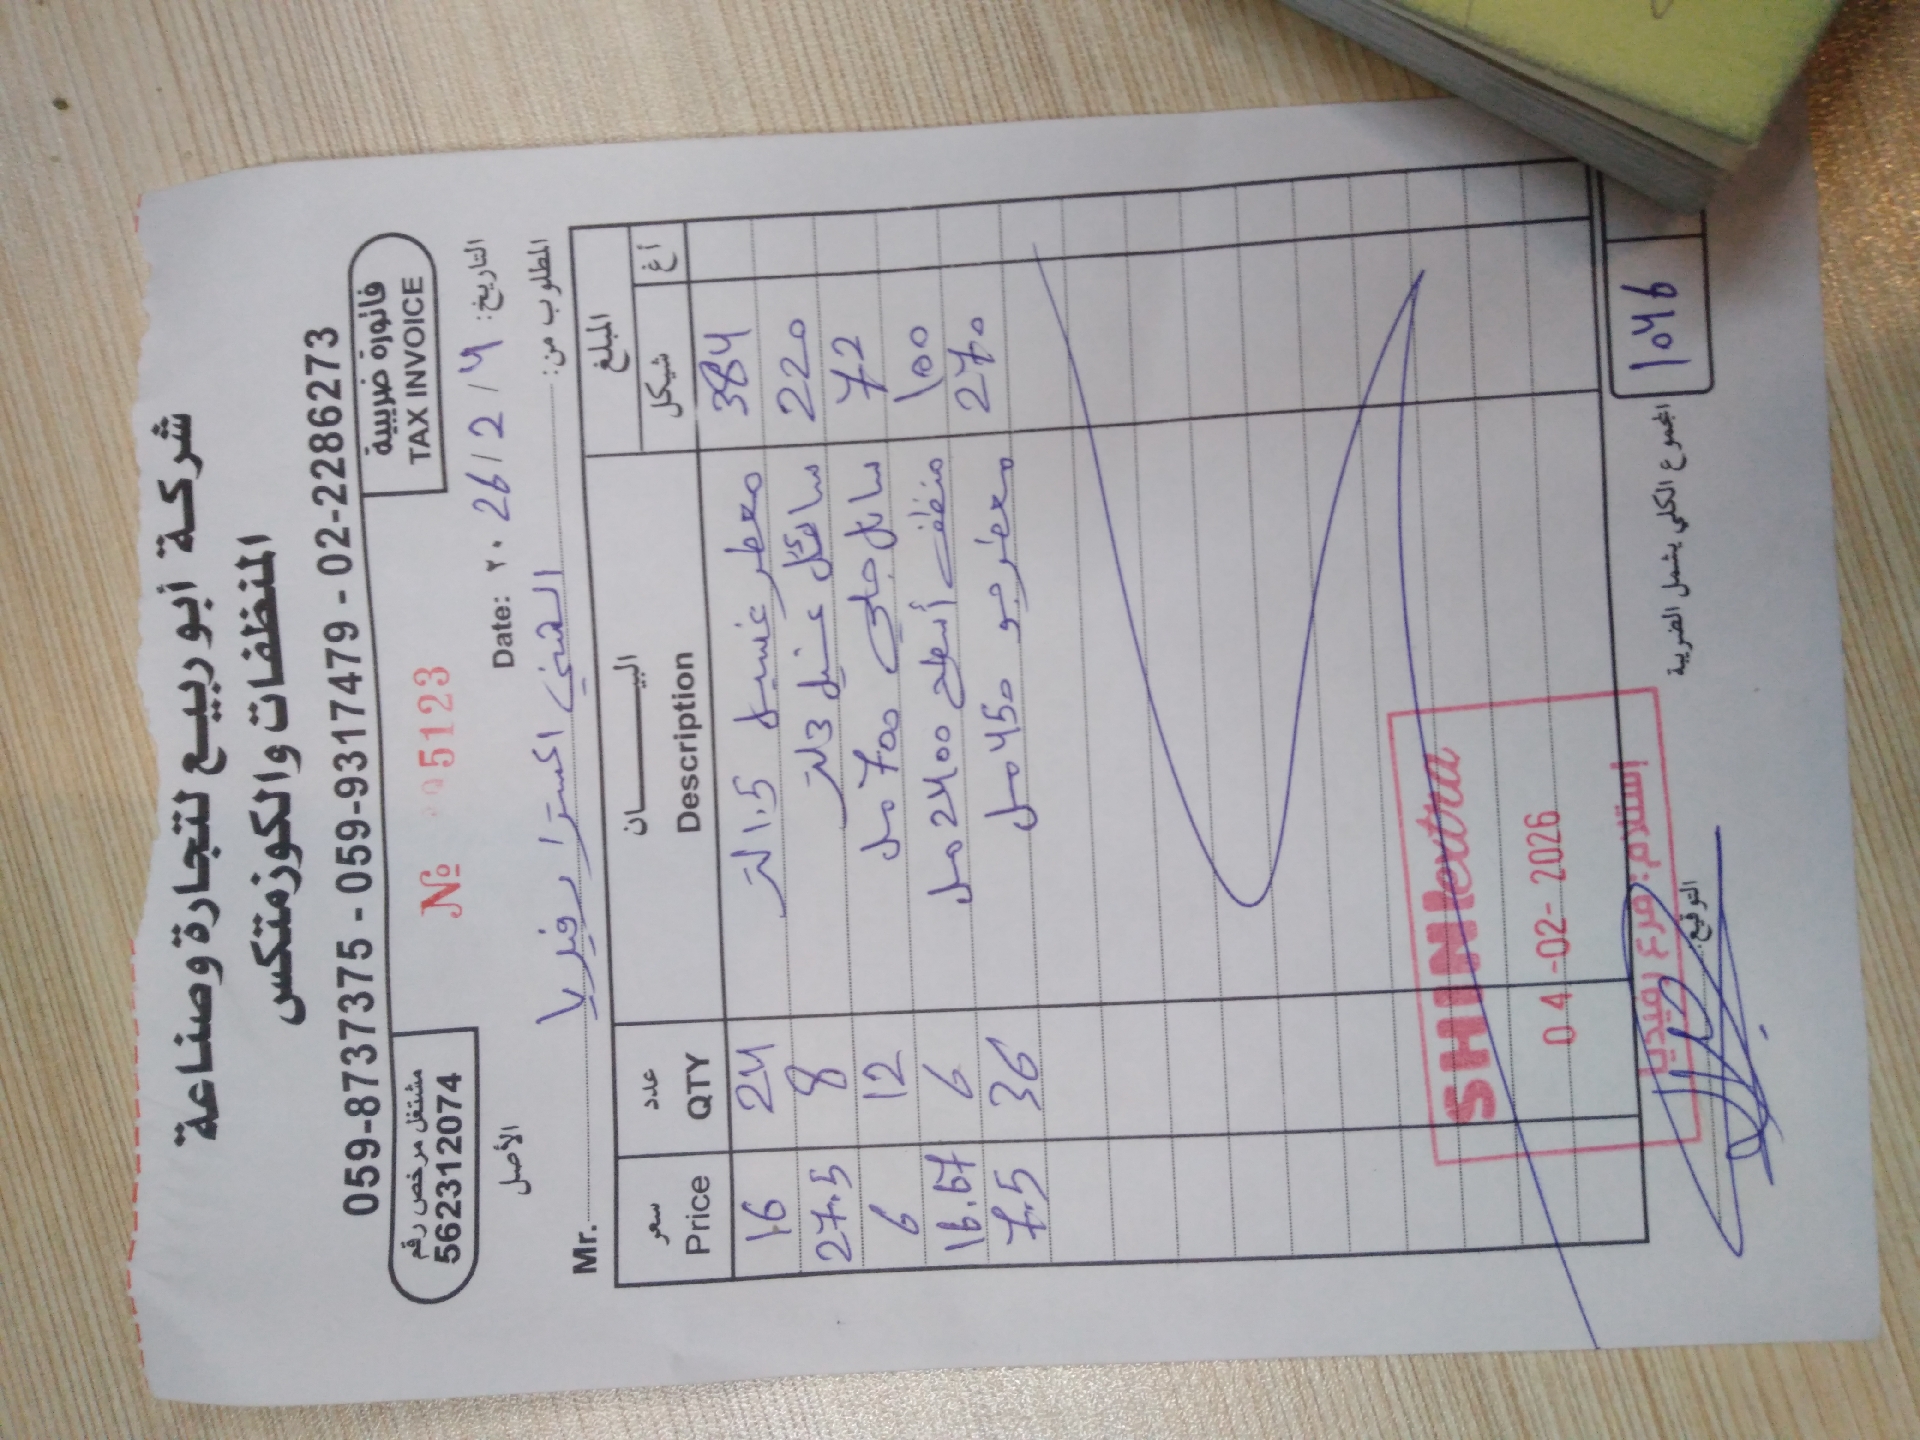 شركة أبو ربيع لتجارة وصناعة
المنظفات والكوزمتكس
059-8737375 - 059-9317479 - 02-2286273
مشتغل مرخص رقم
562312074
№ 005123
فاتورة ضريبية
TAX INVOICE
الأصل
Date: ٢٠26/2/4 التاريخ:
Mr. الشني اكسترا رفيديا المطلوب من:
سعر Price عدد QTY البيــــان Description المبلغ شيكل أغ
16 24 معطر غسيل 1.5 لتر 384
27.5 8 سائل غسيل 3 لتر 220
6 12 سائل جلي 700 مل 72
16.67 6 منظف أسطح 2400 مل 100
7.5 36 معطر جو 450 مل 270
SHINI extra
04-02-2026
إستلام: فرع رفيديا
المجموع الكلي يشمل الضريبة 1046
التوقيع: